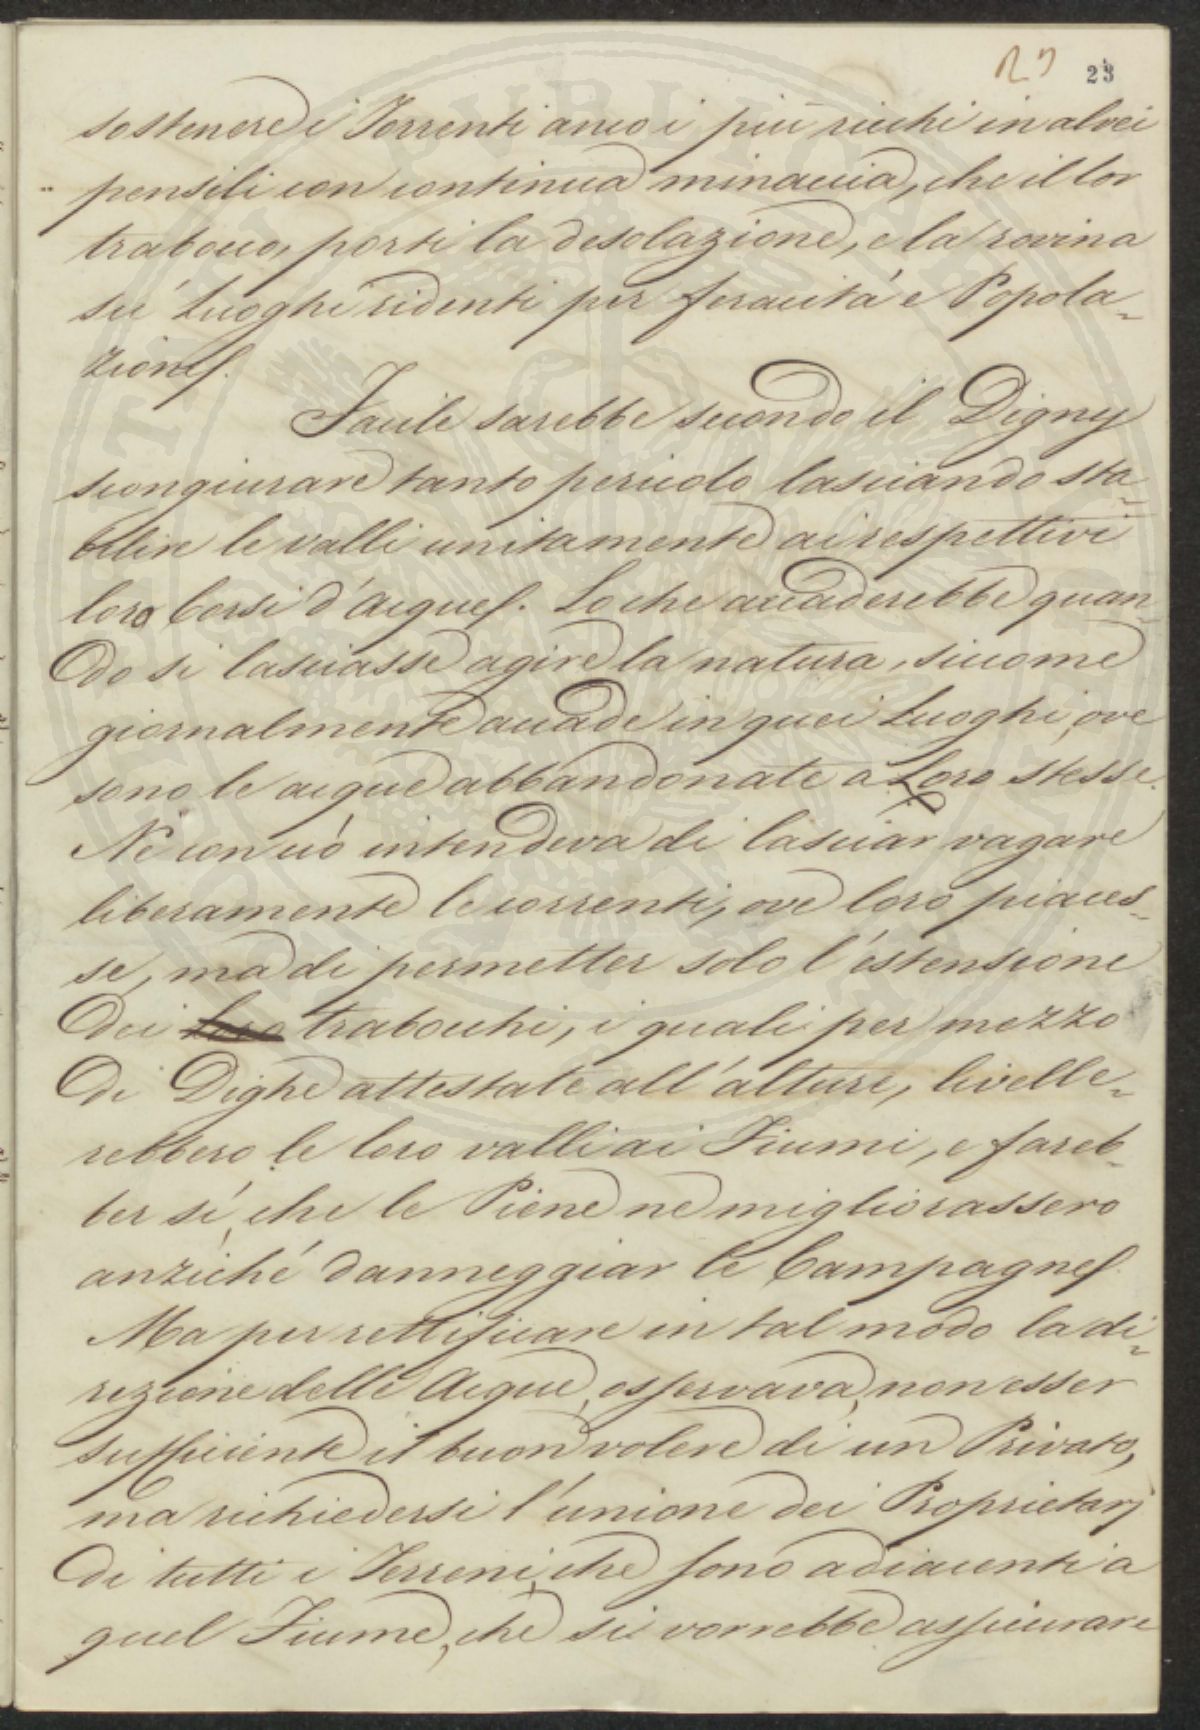 23 23
sostenere i Torrenti anco i più ricchi in alvei
pensili con continua minaccia, che il lor
trabocco, porti la desolazione, e la rovina
su' Luoghi ridenti per feracità e Popola-
zione.
Facile sarebbe secondo il Digny
scongiurare tanto pericolo lasciando sta-
bilire le valli unitamente ai respettivi
loro Corsi d'acque. Lo che accaderebbe quan-
do si lasciasse agire la natura, siccome
giornalmente accade in quei Luoghi, ove
sono le acque abbandonate a Loro stesse.
Né con ciò intendeva di lasciar vagare
liberamente le correnti, ove loro piaces-
se, ma di permetter solo l'estensione
dei loro trabocchi, i quali per mezzo
di Dighe attestate all'alture, livelle-
rebbero le loro valli ai Fiumi, e fareb-
ber sì, che le Piene ne migliorassero
anziché danneggiar le Campagne.
Ma per rettificare in tal modo la di-
rezione delle Acque, osservava, non esser
sufficiente il buon volere di un Privato,
ma richiedersi l'unione dei Proprietarj
di tutti i Terreni, che sono adiacenti a
quel Fiume, che si vorrebbe assicurare
PVBLIC